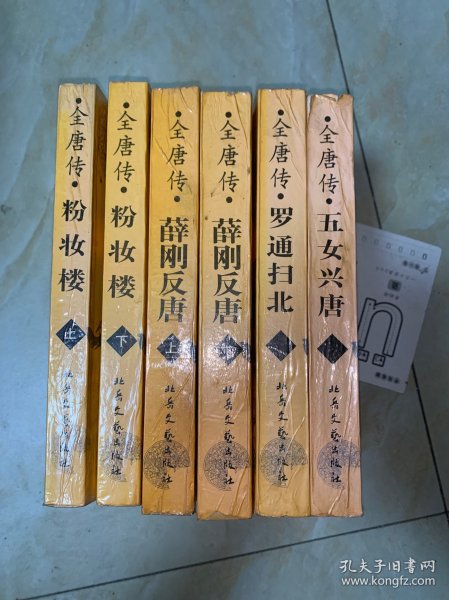 •全唐传•
粉妆楼
上
北岳文艺出版社
•全唐传•
粉妆楼
下
北岳文艺出版社
•全唐传•
薛刚反唐
上
北岳文艺出版社
•全唐传•
薛刚反唐
北岳文艺出版社
•全唐传•
罗通扫北
北岳文艺出版社
•全唐传•
五女兴唐
北岳文艺出版社
孔夫子旧书网
www.kongfz.com